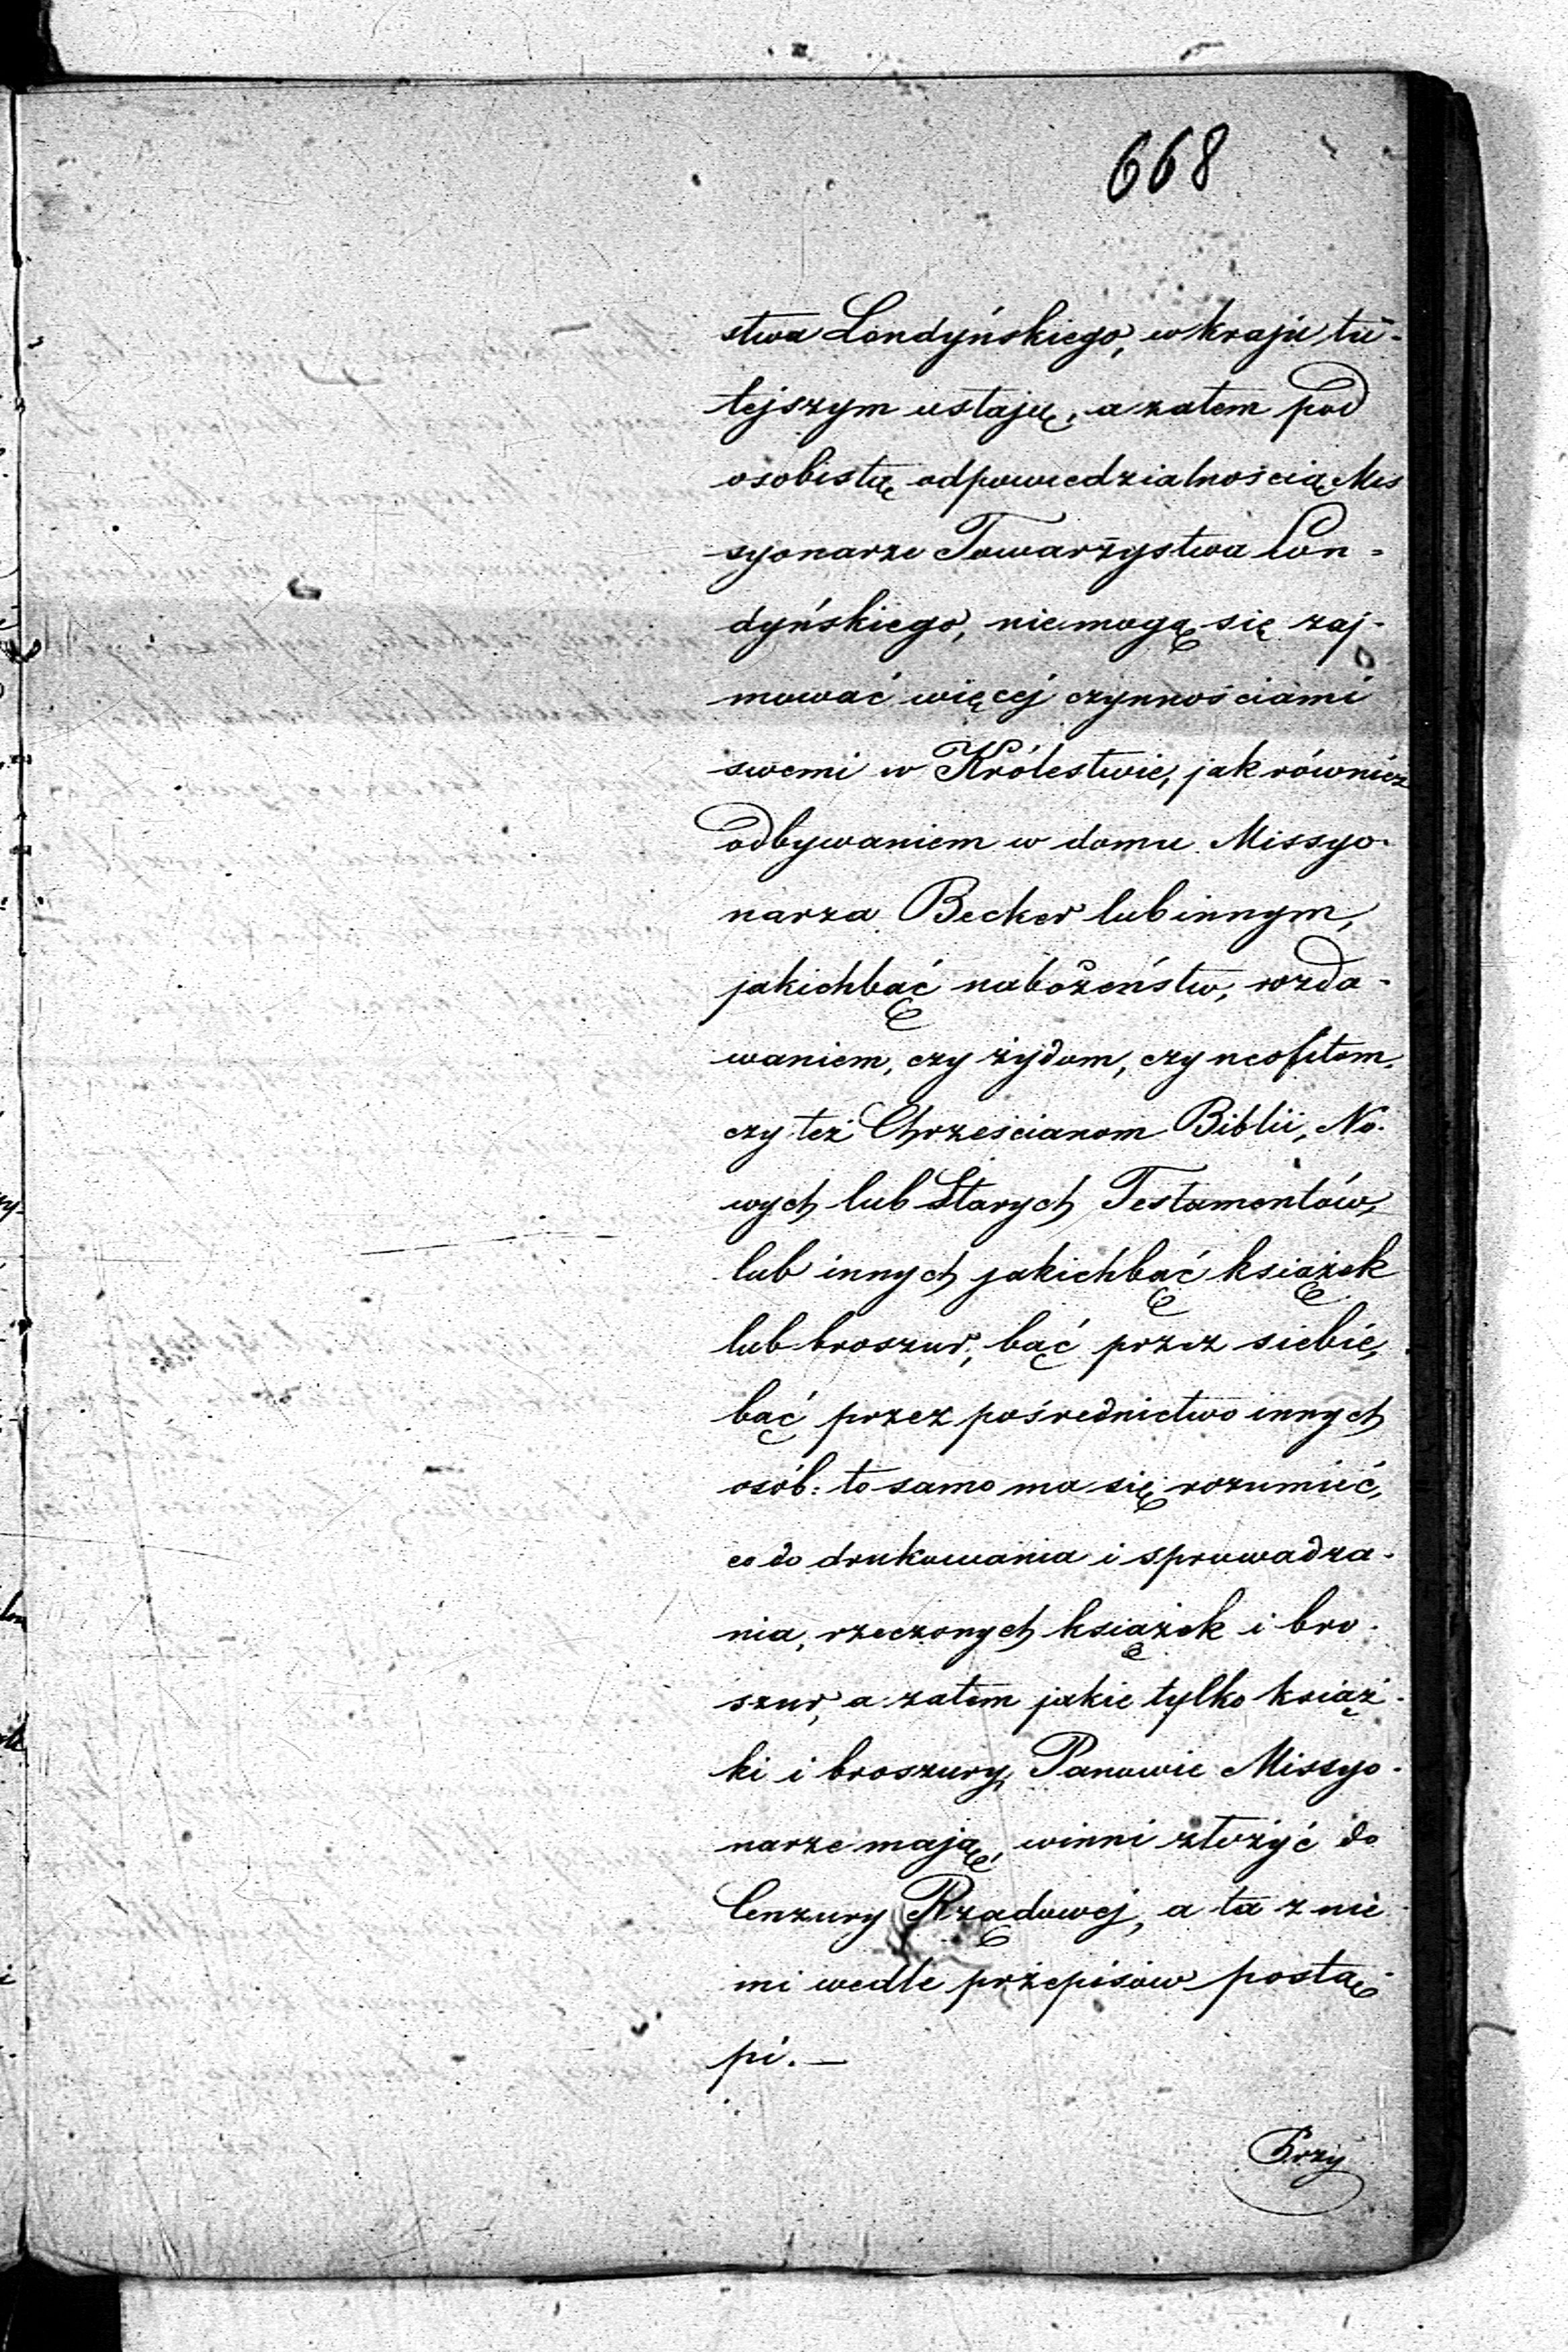 668
stwa Londyńskiego, w kraju tu-
tejszym ustają, a zatem pod
osobistą odpowiedzialnością Mis
syonarze Towarzystwa Lon-
dyńskiego, niemogą się zaj-
mować więcej czynnościami
swemi w Królestwie, jak również
odbywaniem w domu Missyo-
narza Becker lub innym,
jakichbąć nabożeństw, rozda-
waniem, czy żydom, czy neofitom,
czy też Chrześcianom Biblii, No-
wych lub Starych Testamentów,
lub innych jakichbąć książek
lub broszur, bąć przez siebie,
bąć przez pośrednictwo innych
osób: to samo ma się rozumieć,
co do drukowania i sprowadza-
nia, rzeczonych książek i bro-
szur, a zatem jakie tylko książ-
ki i broszury, Panowie Missyo-
narze mają, winni złożyć do
Cenzury Rządowej, a ta z nie
mi wedle przepisów postą-
pi. —
Przy